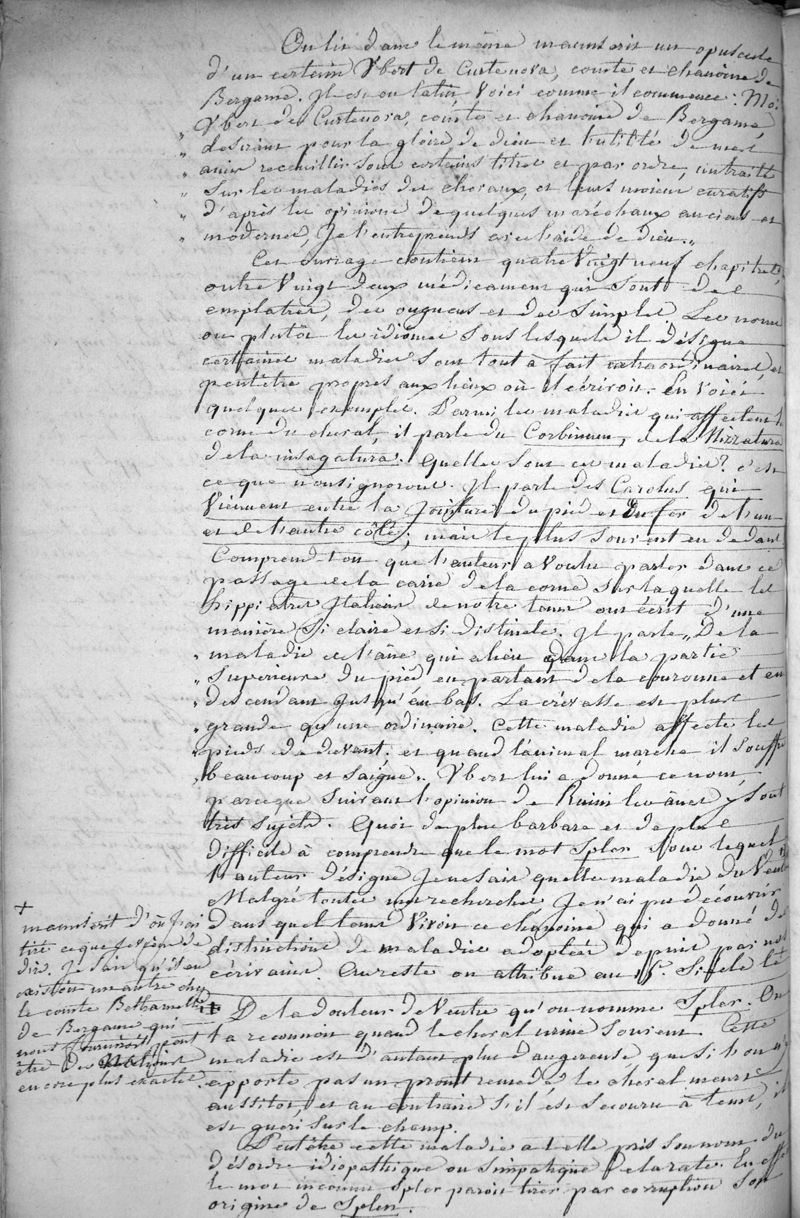 On lit dans le même manuscrit un opuscule
d'un certain Ubert de Curtenova, comte et chanoine de
Bergame. Il est en latin voici comme il commence : Moi
„ Ubert de Curtenova, comte et chanoine de Bergame,
„ desirant pour la gloire de dieu et l'utilité de mes
„ amis recueillir sous certains titres et par ordre, un traité
„ sur les maladies des chevaux, et leurs moiens curatifs
„ d'après les opinions de quelques maréchaux anciens et
„ modernes, Je l'entreprends avec l'aide de dieu. „
Cet ouvrage contient quatre Vingt neuf chapitres,
outre Vingt deux médicamens qui sont des
emplatres, des onguens et des simples. Les noms
ou plutôt les idiomes sous lesquels il désigne
certaines maladies sont tout à fait extraordinaires, et
peutêtre propres aux lieux où il écrivoit. En voici
quelques exemples. Parmi les maladies qui affectent la
corne du cheval, il parle du Corbinum, de la Nizzatura
de la insagatura. Quelles sont ces maladies? c'est
ce que nous ignorons. Il parle des Carolus qui
Viennent entre la Jointure du pied et du fer de l'un
et de l'autre côté, mais le plus souvent en dedans
Comprend-t'on que l'auteur a voulu parler dans ce
passage de la carie de la corne sur laquelle les
hippiatres Italiens de notre tems ont écrit d'une
manière si claire et si distincte. Il parle „ De la
„ maladie de l'âne qui a lieu dans la partie
„ supérieure du pied en partant de la couronne et en
„ descendant jusqu'en bas. La crevasse est plus
„ grande qu'une ordinaire. Cette maladie affecte les
„ pieds de devant, et quand l'animal marche il souffre
„ beaucoup et saigne. „ Ubert lui a donné ce nom,
parceque suivant l'opinion de Ruini les ânes y sont
très sujets. Quoi de plus barbare et de plus
difficile à comprendre que le mot Spler sous lequel
l'auteur désigne Je ne sais quelle maladie du Ventre ‡
Malgré toutes mes recherches Je n'ai pu découvrir
dans quel tems Vivoit ce chanoine qui a donné des
distinctions de maladies adoptées depuis par nos
écrivains. Au reste on attribue au 15e. Siècle le +
+
manuscrit d'où j'ai
tiré ce que je viens de
dire. Je sais qu'il en
existoit un autre chez
le comte
de Bergame qui
nous fourniroit peut
être des Notions
encore plus exactes.
‡ De la douleur de Ventre qu'on nomme Spler. On
la reconnoit quand le cheval urine souvent. Cette
maladie est d'autant plus dangereuse, que si l'on n'y
apporte pas un prompt remède, le cheval meurt
aussitôt, et au contraire s'il est secouru à tems, il
est guéri sur le champ.
Peutêtre cette maladie a t elle pris son nom du
désordre idiopathique ou simpatique de la rate. En effet
le mot inconnu Spler paroit tirer par corruption son
origine de Splen.